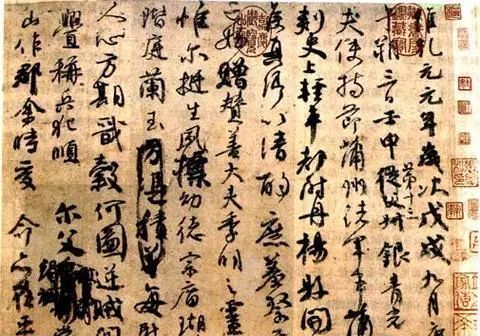 維乾元元年歲次戊戌九月庚
午朔三日壬申第十三從父叔銀青光
夫使持節蒲州諸軍事蒲
刺史上輕車都尉丹楊縣開
侯真卿以清酌庶羞祭
亡姪贈贊善大夫季明之靈
惟爾挺生夙標幼德宗廟瑚
階庭蘭玉方憑積善每慰
人心方期戩穀何圖逆賊閒
釁稱兵犯順爾父
山作郡余時受命亦在平